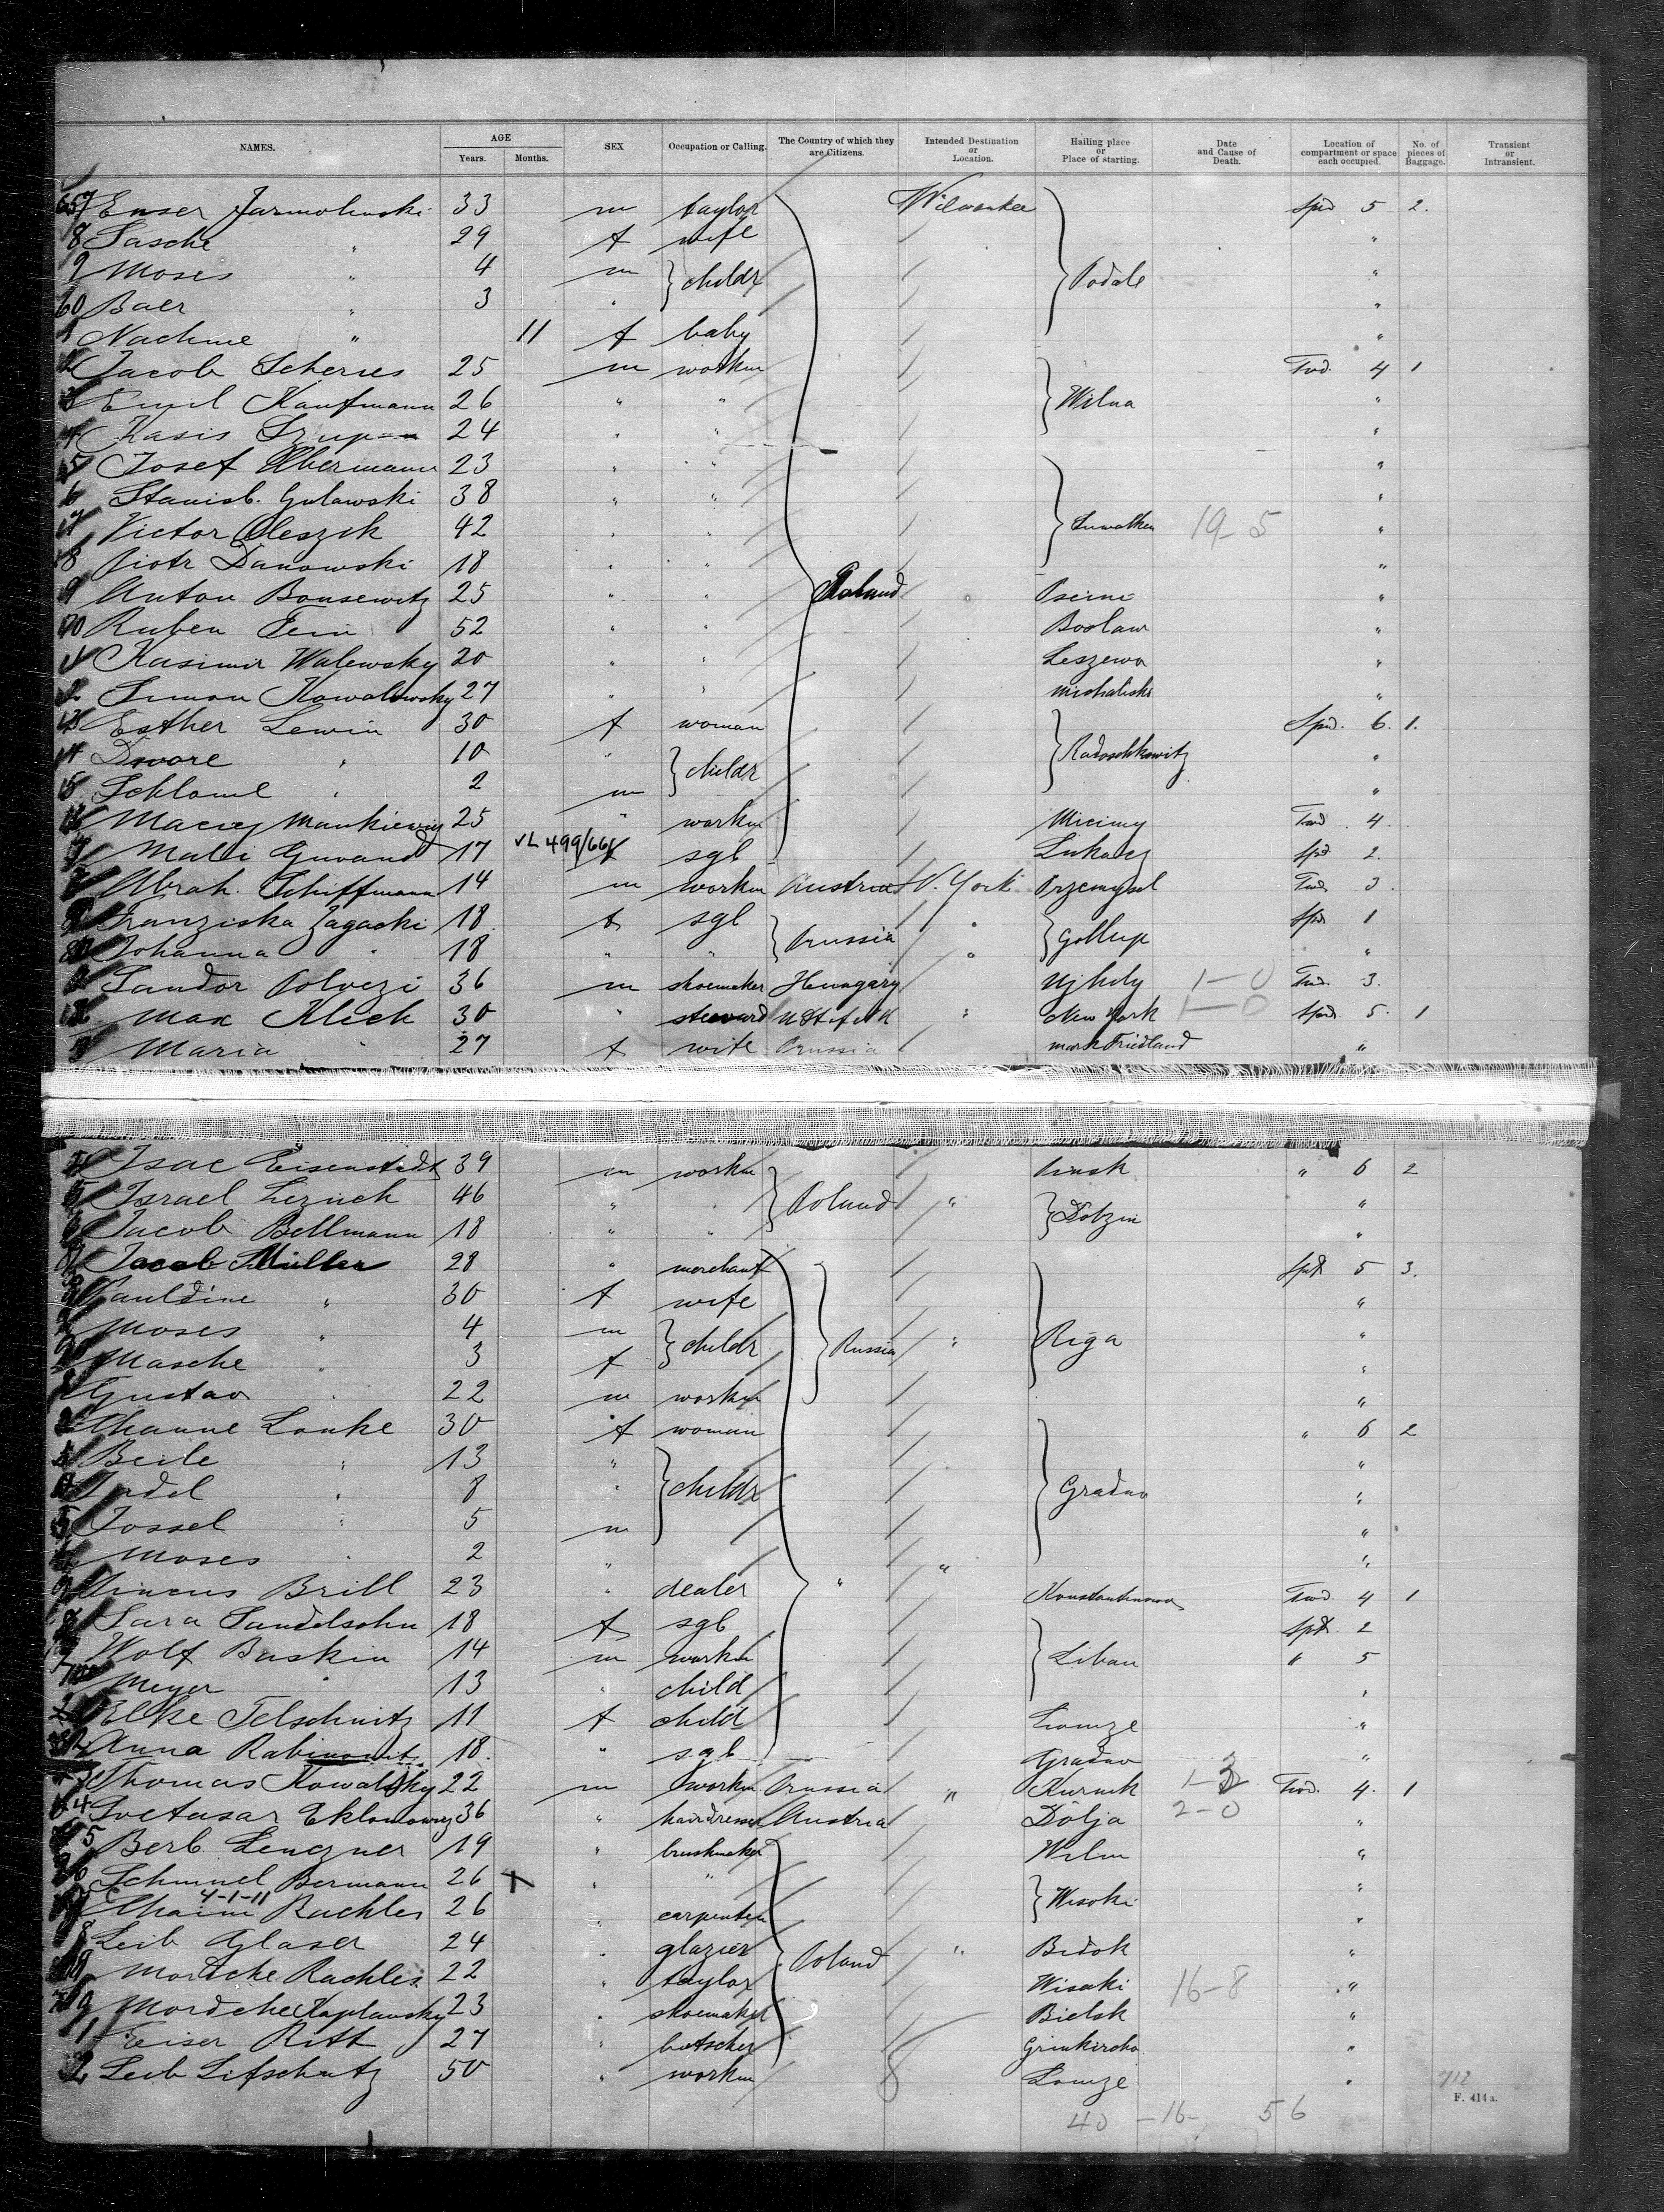 NAMES. AGE Years. Months. SEX Occupation or Calling. The Country of which they are Citizens. Intended Destination or Location. Hailing place or Place of starting. Date and Cause of Death. Location of compartment or space each occupied. No. of pieces of Baggage. Transient or Intransient.
657 Enser Jarmolinski 33 m taylor Milwaukee Spd 5 2.
8 Sasche " 29 f wife "
9 Moses " 4 m childr Podale "
60 Baer " 3 " "
1 Nachme " 11 f baby "
2 Jacob Scherres 25 m workm Twd. 4 1
3 Emil Kaufmann 26 " " Wilna "
4 Kasis 24 " " "
5 Josef Olbermann 23 " " "
6 Stanisl. Gulawski 38 " " "
7 Victor Oleszik 42 " " Suwalken 19-5 "
8 Piotr Danowski 18 " " "
9 Anton Bonsewitz 25 " " Poland "
70 Ruben Fein 52 " " Boslaw "
1 Kasimir Walewsky 20 " " Leszewo "
2 Simon Kowalewsky 27 " " Michalischi "
3 Esther Lewin 30 f woman Spd. 6. 1.
4 Dwore " 10 " childr Radoschkowitz "
5 Schlome " 2 m "
6 Maciej Mankiewicz 25 " workm Twd. 4.
7 Mali 17 VL 499/661 f sgl Spd 2.
8 Abrah. Schiffmann 14 m workm Austria N. York Przemysl Twd. 3.
9 Franziska Zagacki 18 f sgl Prussia Gollup Spd. 1
80 Johanna " 18 " " "
1 Sandor Polvezi 36 m shoemaker Hungary Ujhely 1-0 Twd. 3.
2 Max Kleck 30 " steward New York 1-0 Spd. 5. 1
3 Maria " 27 f wife Prussia Mark Friedland "
4 Isac Eisenstadt 39 m workm Pinsk " 6 2
5 Israel Leznick 46 " " Poland " Dobzin "
6 Jacob Bellmann 18 " " "
87 Jacob Müller 28 " merchant Spd 5 3.
8 Pauldine " 30 f wife "
9 Moses " 4 m childr Russia " Riga "
90 Masche " 3 f "
1 Gustav " 22 m workm "
2 Channe Lonke 30 f woman " 6 2
3 Beile " 13 " childr "
4 Judel " 8 " Gradno "
5 Jossel " 5 m "
6 Moses " 2 " " "
7 Pincus Brill 23 " dealer " Konstantinowo Twd. 4 1
8 Sara Sandelsohn 18 f sgl Spd. 2
9 Wolf Baskin 14 m workm Libau " 5
700 Meyer " 13 " child "
Elke Telschnitz 11 f child Lomze "
2 Anna Rabinowitz 18. " sgl Gradno "
3 Thomas Kowalsky 22 m workm Prussia " Kurnik Twd. 4. 1
4 36 " hairdresser Austria Dolja 2-0 "
5 Berl Lenczner 19 " brushmaker Wilna "
6 Schmuel Bermann 26 X " " "
4-1-11
7 Chaim Rachles 26 " carpenter Wisoki "
8 Leib Glaser 24 " glazier Poland " Bidok "
9 Mordche Rachles 22 " taylor Wisoki 16-8 "
Mordche Kaplansky 23 " shoemaker Bielsk "
1 Leiser Ritt 27 " botscher "
2 Leib Lifschutz 50 " workm 8 Lomze " 712
F. 414 a.
40 -16- 56